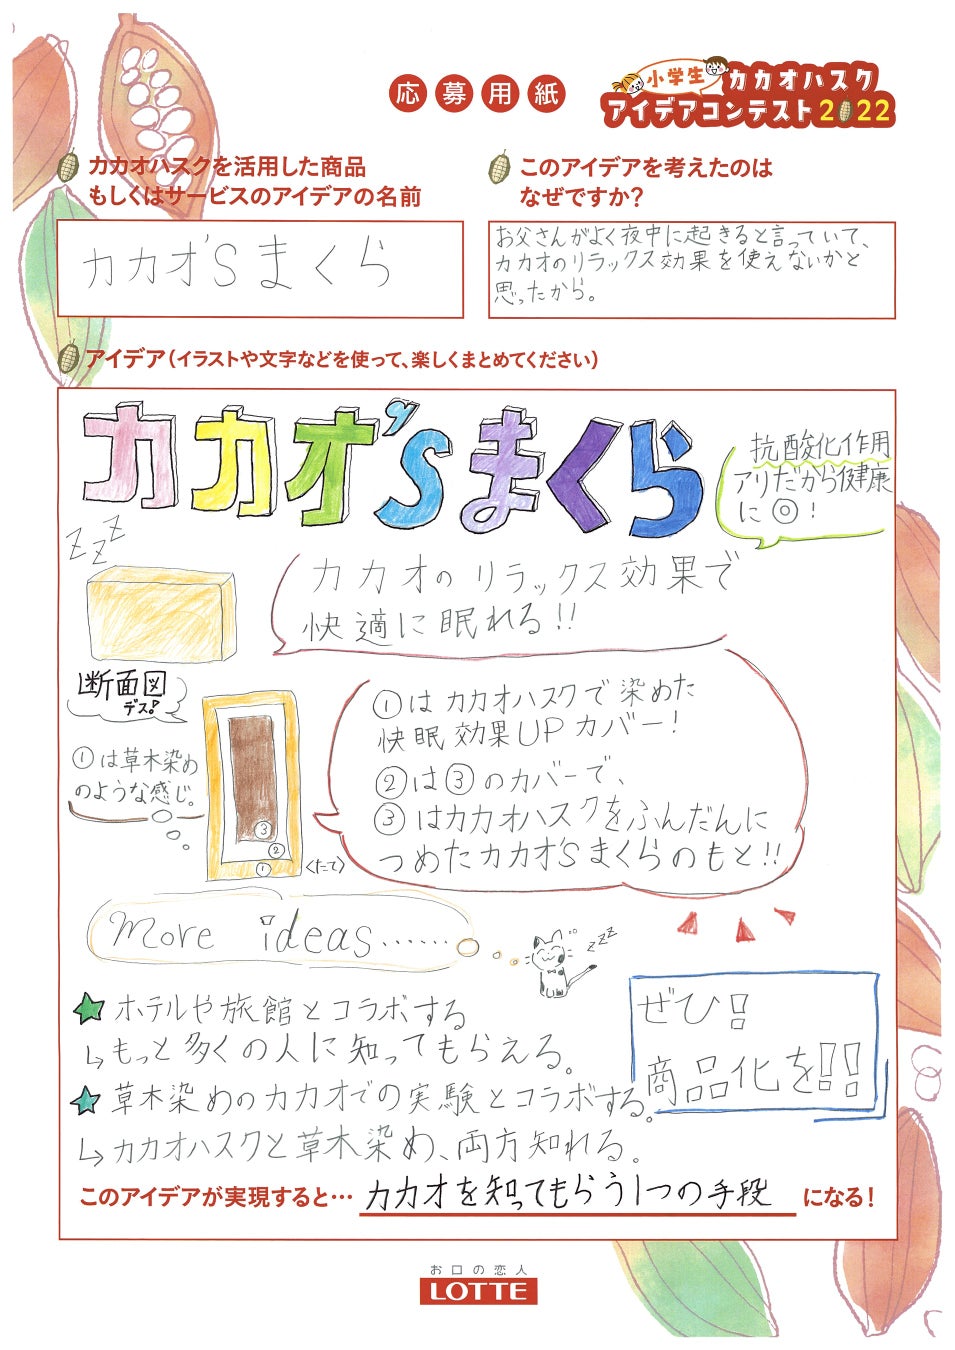 応募用紙
小学生
カカオハスク
アイデアコンテスト2022
カカオハスクを活用した商品
もしくはサービスのアイデアの名前
カカオ'Sまくら
このアイデアを考えたのは
なぜですか？
お父さんがよく夜中に起きると言っていて、
カカオのリラックス効果を使えないかと
思ったから。
アイデア（イラストや文字などを使って、楽しくまとめてください）
カカオ'sまくら
抗酸化作用
アリだから健康
に◎！
ZZZ
カカオのリラックス効果で
快適に眠れる!!
断面図
デス!
①は草木染め
のような感じ。
③
②
①
<たて>
①はカカオハスクで染めた
快眠効果UPカバー！
②は③のカバーで、
③はカカオハスクをふんだんに
つめたカカオ'sまくらのもと!!
more ideas……
zzz
★ホテルや旅館とコラボする
↳もっと多くの人に知ってもらえる。
★草木染めのカカオでの実験とコラボする。
↳カカオハスクと草木染め、両方知れる。
ぜひ！
商品化を!!
このアイデアが実現すると…カカオを知ってもらう1つの手段になる！
お口の恋人
LOTTE